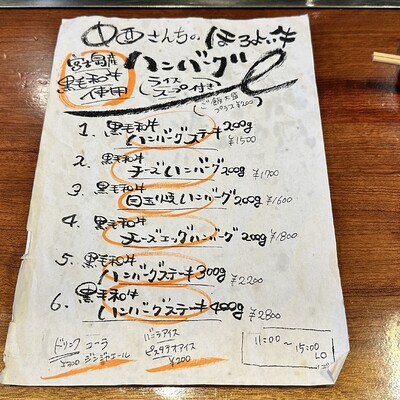 中西さんちの、ほろよい牛
ハンバーグ
富士宮産
黒毛和牛
使用
ライス
スープ付き
ご飯大盛
プラス¥200
1. 黒毛和牛
ハンバーグステーキ200g ¥1500
2. 黒毛和牛
チーズハンバーグ200g ¥1700
3. 黒毛和牛
目玉焼ハンバーグ200g ¥1600
4. 黒毛和牛
チーズエッグハンバーグ200g ¥1800
5. 黒毛和牛
ハンバーグステーキ300g ¥2200
6. 黒毛和牛
ハンバーグステーキ400g ¥2800
ドリンク コーラ
¥300 ジンジャエール
バニラアイス
ピスタチオアイス
¥200
11:00〜15:00
LO